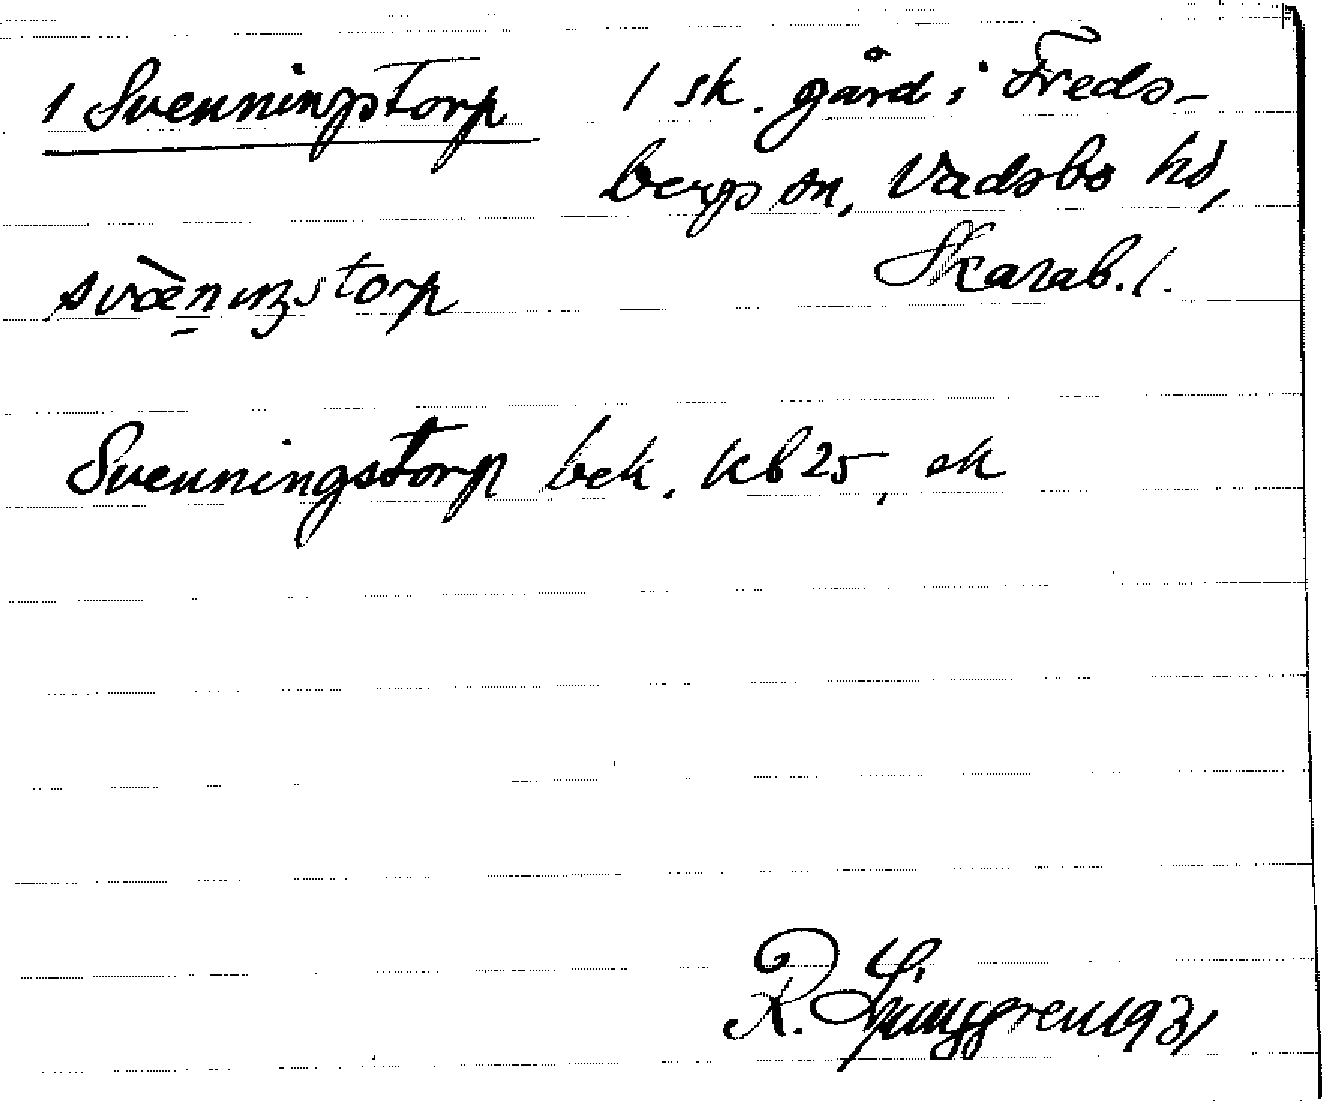 1 Svenningstorp
1 sk. gård i Freds-
bergs sn, Vadsbo hd,
Skarab. l.
svæ̀nıŋstorp
Svenningstorp bek. KB 25, ek
R. Ljunggren 1931